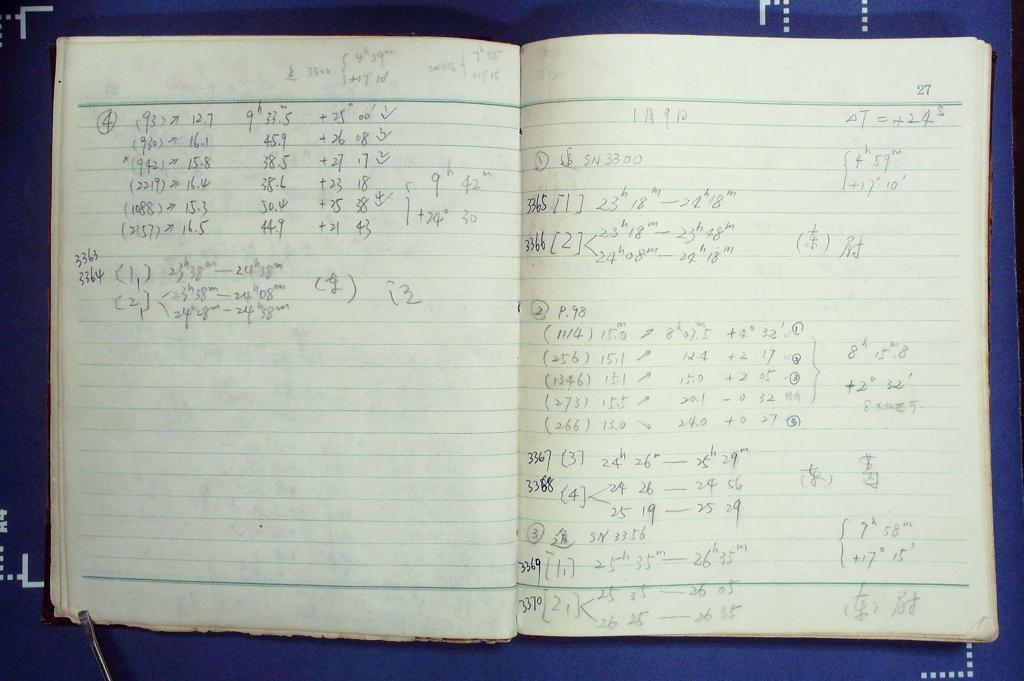 追 3300 { 4ʰ 59ᵐ
+17° 10'
SN3356 { 7ʰ 58
+17° 15'
④ (93)↗ 12.7 9ʰ 33.ᵐ5 +25° 00' ✓
(930)↗ 16.1 45.9 +26 08
*(942)↗ 15.8 38.5 +27 17
(2219)↗ 16.4 38.6 +23 18
(1088)↗ 15.3 50.4 +25 38
(2157)↗ 16.5 44.9 +21 43
{ 9ʰ 42ᵐ
+24° 30
3363
3364 [1,] 23ʰ38ᵐ—24ʰ38ᵐ
[2,] < 23ʰ38ᵐ—24ʰ08ᵐ
24ʰ28ᵐ—24ʰ38ᵐ
27
1月9日 ΔT = +24ˢ
① 追 SN3300 { 4ʰ 59ᵐ
+17° 10'
3365 [1] 23ʰ18ᵐ—24ʰ18ᵐ
3366 [2] < 23ʰ18ᵐ—23ʰ48ᵐ
24ʰ08ᵐ—24ʰ18ᵐ
(东) 尉
② P.98
(1114) 15.ᵐ0 ↗ 8ʰ07.ᵐ5 +4° 32' ①
(256) 15.1 ↗ 12.4 +2 17 ②
(1346) 15.1 ↗ 15.0 +2 05 ③
(273) 15.5 ↗ 20.1 -0 32
(266) 13.0 ↘ 24.0 +0 27 ④
8ʰ 15.ᵐ8
+2° 32'
3367 [3] 24ʰ 26ᵐ — 25ʰ 29ᵐ
3388 [4] < 24 26 — 24 56
25 19 — 25 29
(东)
③ 追 SN3356 { 7ʰ 58ᵐ
+17° 15'
3369 [1,] 25ʰ 35ᵐ — 26ʰ 35ᵐ
3370 [2,] < 25 35 — 26 05
26 25 — 26 35
(东) 尉